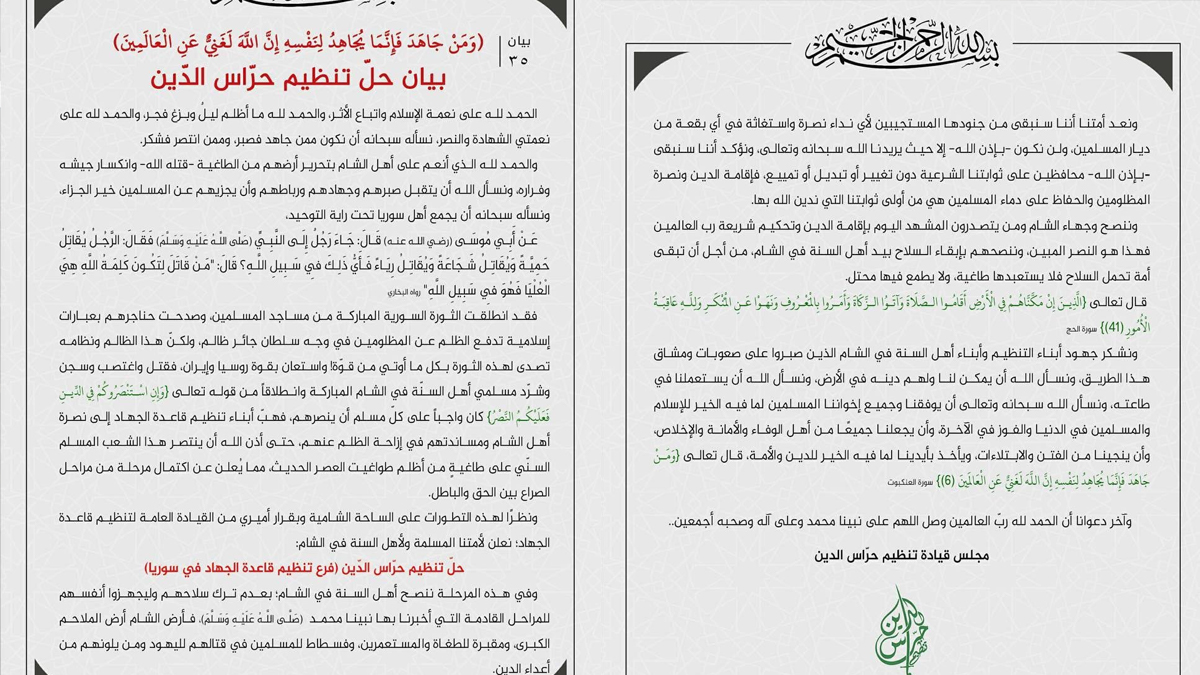 بيان
٣٥
(وَمَنْ جَاهَدَ فَإِنَّمَا يُجَاهِدُ لِنَفْسِهِ إِنَّ اللَّهَ لَغَنِيٌّ عَنِ الْعَالَمِينَ)
بيان حلّ تنظيم حرّاس الدّين
الحمد لله على نعمة الإسلام واتباع الأثر، والحمد لله ما أظلم ليلٌ وبزغ فجر، والحمد لله على
نعمتي الشهادة والنصر، نسأله سبحانه أن نكون ممن جاهد فصبر، وممن انتصر فشكر.
والحمد لله الذي أنعم على أهل الشام بتحرير أرضهم من الطاغية -قتله الله- وانكسار جيشه
وفراره، ونسأل الله أن يتقبل صبرهم وجهادهم ورباطهم وأن يجزيهم عن المسلمين خير الجزاء،
ونسأله سبحانه أن يجمع أهل سوريا تحت راية التوحيد،
عَنْ أَبِي مُوسَى (رضي الله عنه) قَالَ: جَاءَ رَجُلٌ إِلَى النَّبِيِّ (صَلَّى اللهُ عَلَيْهِ وَسَلَّمَ) فَقَالَ: الرَّجُلُ يُقَاتِلُ
حَمِيَّةً وَيُقَاتِلُ شَجَاعَةً وَيُقَاتِلُ رِيَاءً فَأَيُّ ذَلِكَ فِي سَبِيلِ اللَّهِ؟ قَالَ: "مَنْ قَاتَلَ لِتَكُونَ كَلِمَةُ اللَّهِ هِيَ
الْعُلْيَا فَهُوَ فِي سَبِيلِ اللَّهِ" رواه البخاري
فقد انطلقت الثورة السورية المباركة من مساجد المسلمين، وصدحت حناجرهم بعبارات
إسلامية تدفع الظلم عن المظلومين في وجه سلطان جائر ظالم، ولكنّ هذا الظالم ونظامه
تصدى لهذه الثورة بكل ما أوتي من قوّة! واستعان بقوة روسيا وإيران، فقتل واغتصب وسجن
وشرّد مسلمي أهل السنّة في الشام المباركة وانطلاقاً من قوله تعالى {وَإِنِ اسْتَنْصَرُوكُمْ فِي الدِّينِ
فَعَلَيْكُمُ النَّصْرُ} كان واجباً على كلّ مسلم أن ينصرهم، فهبّ أبناء تنظيم قاعدة الجهاد إلى نصرة
أهل الشام ومساندتهم في إزاحة الظلم عنهم، حتى أذن الله أن ينتصر هذا الشعب المسلم
السنّي على طاغيةٍ من أظلم طواغيت العصر الحديث، مما يُعلن عن اكتمال مرحلة من مراحل
الصراع بين الحق والباطل.
ونظرًا لهذه التطورات على الساحة الشامية وبقرار أميري من القيادة العامة لتنظيم قاعدة
الجهاد؛ نعلن لأمتنا المسلمة ولأهل السنة في الشام:
حلّ تنظيم حرّاس الدّين (فرع تنظيم قاعدة الجهاد في سوريا)
وفي هذه المرحلة ننصح أهل السنة في الشام؛ بعدم ترك سلاحهم وليجهزوا أنفسهم
للمراحل القادمة التي أخبرنا بها نبينا محمد (صَلَّى اللهُ عَلَيْهِ وَسَلَّمَ)، فأرض الشام أرض الملاحم
الكبرى، ومقبرة للطغاة والمستعمرين، وفسطاط للمسلمين في قتالهم لليهود ومن يلونهم من
أعداء الدين.
بسم الله الرحمن الرحيم
ونعد أمتنا أننا سنبقى من جنودها المستجيبين لأي نداء نصرة واستغاثة في أي بقعة من
ديار المسلمين، ولن نكون -بإذن الله- إلا حيث يريدنا الله سبحانه وتعالى، ونؤكد أننا سنبقى
-بإذن الله- محافظين على ثوابتنا الشرعية دون تغيير أو تبديل أو تمييع، فإقامة الدين ونصرة
المظلومين والحفاظ على دماء المسلمين هي من أولى ثوابتنا التي ندين الله بها.
وننصح وجهاء الشام ومن يتصدرون المشهد اليوم بإقامة الدين وتحكيم شريعة رب العالمين
فهذا هو النصر المبين، وننصحهم بإبقاء السلاح بيد أهل السنة في الشام، من أجل أن تبقى
أمة تحمل السلاح فلا يستعبدها طاغية، ولا يطمع فيها محتل.
قال تعالى {الَّذِينَ إِنْ مَكَّنَّاهُمْ فِي الْأَرْضِ أَقَامُوا الصَّلَاةَ وَآتَوُا الزَّكَاةَ وَأَمَرُوا بِالْمَعْرُوفِ وَنَهَوْا عَنِ الْمُنْكَرِ وَلِلَّهِ عَاقِبَةُ
الْأُمُورِ (41)} سورة الحج
ونشكر جهود أبناء التنظيم وأبناء أهل السنة في الشام الذين صبروا على صعوبات ومشاق
هذا الطريق، ونسأل الله أن يمكن لنا ولهم دينه في الأرض، ونسأل الله أن يستعملنا في
طاعته، ونسأل الله سبحانه وتعالى أن يوفقنا وجميع إخواننا المسلمين لما فيه الخير للإسلام
والمسلمين في الدنيا والفوز في الآخرة، وأن يجعلنا جميعًا من أهل الوفاء والأمانة والإخلاص،
وأن ينجينا من الفتن والابتلاءات، ويأخذ بأيدينا لما فيه الخير للدين والأمة، قال تعالى {وَمَنْ
جَاهَدَ فَإِنَّمَا يُجَاهِدُ لِنَفْسِهِ إِنَّ اللَّهَ لَغَنِيٌّ عَنِ الْعَالَمِينَ (6)} سورة العنكبوت
وآخر دعوانا أن الحمد لله ربّ العالمين وصل اللهم على نبينا محمد وعلى آله وصحبه أجمعين..
مجلس قيادة تنظيم حرّاس الدين
حراس الدين